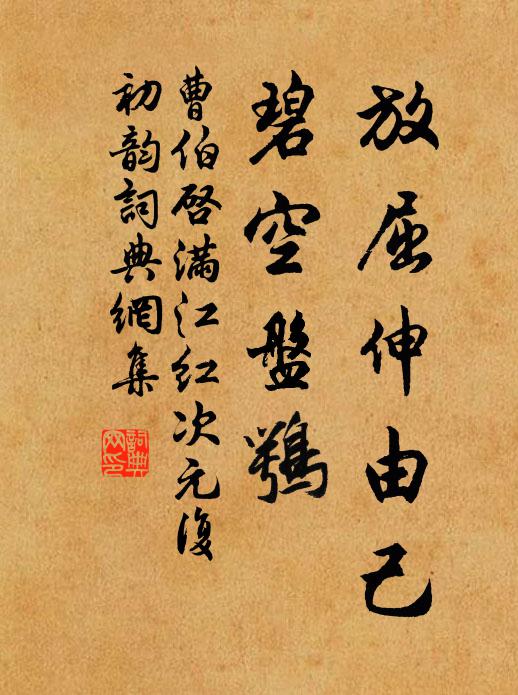 放屈伸由己
碧空盤鶚
曹伯啓滿江红次元復
初韵詞典網集
詞典
网印